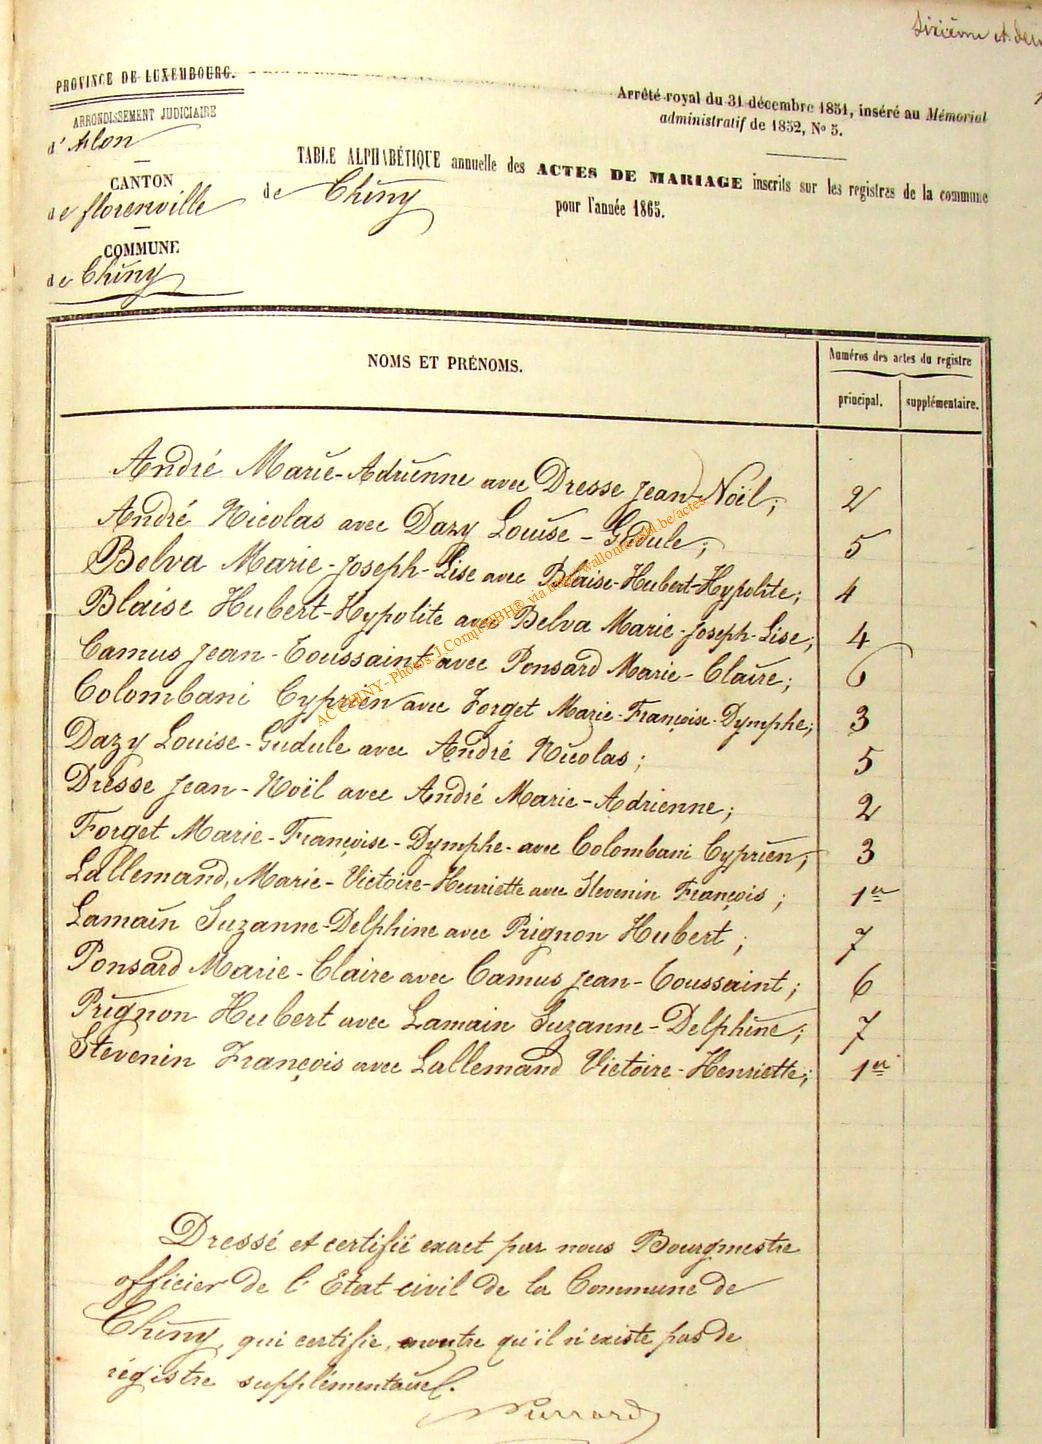 Sixième et
PROVINCE DE LUXEMBOURG.
ARRONDISSEMENT JUDICIAIRE
d'Arlon
CANTON
de florenville
COMMUNE
de Chiny
Arrêté royal du 31 décembre 1851, inséré au Mémorial
administratif de 1852, No 5.
TABLE ALPHABÉTIQUE annuelle des ACTES DE MARIAGE inscrits sur les registres de la commune
de Chiny
pour l'année 1865.
NOMS ET PRÉNOMS.
Numéros des actes du registre
principal. supplémentaire.
André Marie-Adrienne avec Dresse Jean-Noël; 2
André Nicolas avec Dazy Louise-Gudule; 5
Belva Marie-Joseph-Lise avec Blaise-Hubert-Hypolite; 4
Blaise Hubert-Hypolite avec Belva Marie-Joseph-Lise; 4
Camus Jean-Toussaint avec Ponsard Marie-Claire; 6
Colombani Cyprien avec Forget Marie-Françoise-Dymphe; 3
Dazy Louise-Gudule avec André Nicolas; 5
Dresse Jean-Noël avec André Marie-Adrienne; 2
Forget Marie-Françoise-Dymphe-avec Colombani Cyprien; 3
Lallemand, Marie-Victoire-Henriette avec Stevenin François; 1er
Lamain Suzanne-Delphine avec Prignon Hubert; 7
Ponsard Marie-Claire avec Camus Jean-Toussaint; 6
Prignon Hubert avec Lamain Suzanne-Delphine; 7
Stevenin François avec Lallemand Victoire-Henriette; 1er
Dressé et certifié exact par nous Bourgmestre
officier de l'Etat-civil de la Commune de
Chiny, qui certifie, enoutre qu'il n'existe pas de
régistre supplémentaire.